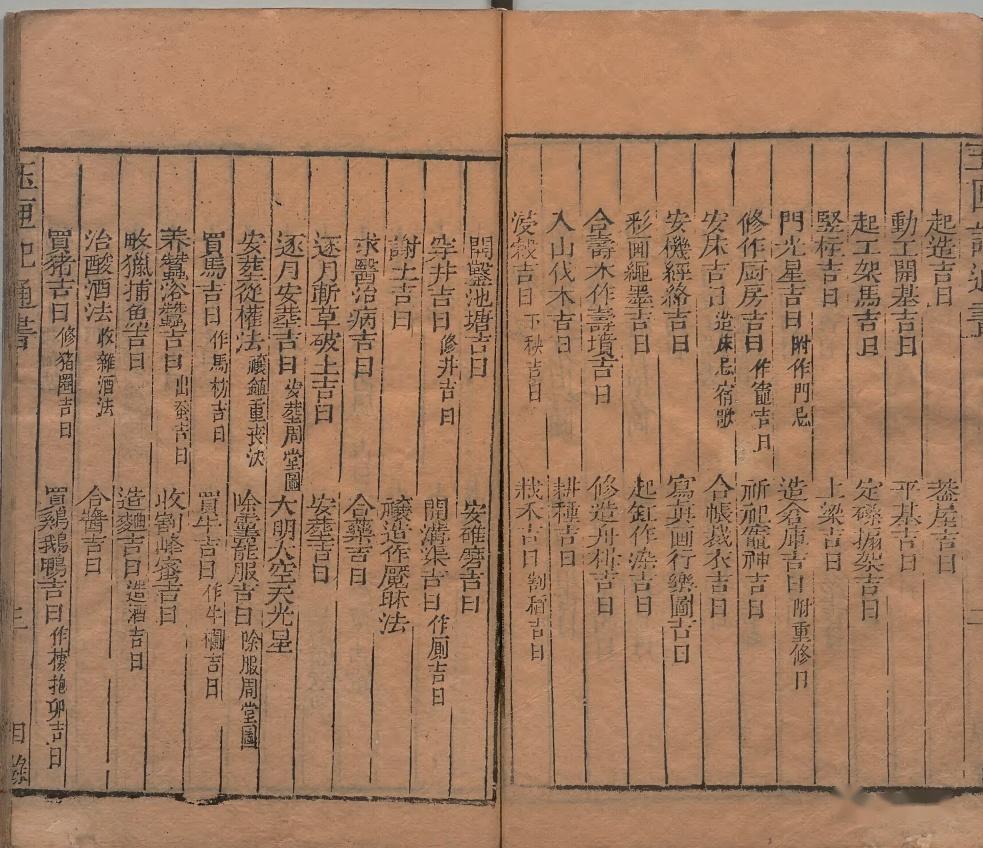 起造吉日　蓋屋吉日
動工開基吉日　平基吉日
起工架馬吉日　定磉搧架吉日
竪柱吉日　上梁吉日
門光星吉日　附作門忌　造倉庫吉日　附重修日
修作厨房吉日　作竈吉日　祈祀竈神吉日
安床吉日　造床忌宿歌　合帳裁衣吉日
安機經絡吉日　寫真画行樂圖吉日
彩画繩墨吉日　起缸作染吉日
合壽木作壽墳吉日　修造舟楫吉日
入山伐木吉日　耕種吉日
浸穀吉日　下秧吉日　栽禾吉日　割稻吉日
開鑿池塘吉日　安碓磨吉日
穿井吉日　修井吉日　開溝渠吉日　作厠吉日
謝土吉日　禳造作魘昧法
求醫治病吉日　合藥吉日
逐月斬草破土吉日　安塟吉日
逐月安塟吉日　安塟周堂圖　大明大空天光星
安塟從權法　禳鎮重喪法　除靈服吉日　除服周堂圖
買馬吉日　作馬枋吉日　買牛吉日　作牛欄吉日
养蠶浴蠶吉日　出蚕吉日　收割蜂蜜吉日
畋獵捕魚吉日　造麯吉日　造酒吉日
治酸酒法　收雜酒法　合醬吉日
買猪吉日　修猪圈吉日　買鷄鵝鴨吉日　作棲抱卵吉日
玉匣記通書　三　目錄